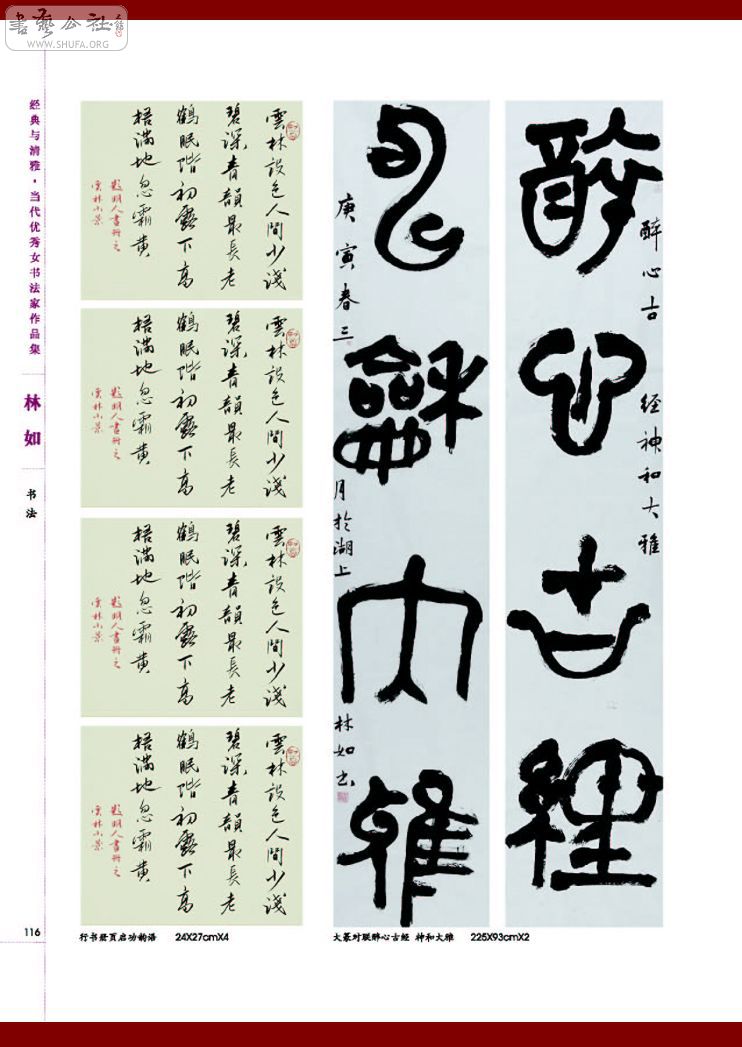 書藝公社
WWW.SHUFA.ORG
经典与清雅·当代优秀女书法家作品集
林如
书法
116
雲林設色人間少淺
碧深青韻最長老
鶴眠階初露下高
梧滿地忽霜黄
題明人畫冊之
雲林小景
雲林設色人間少淺
碧深青韻最長老
鶴眠階初露下高
梧滿地忽霜黄
題明人畫冊之
雲林小景
雲林設色人間少淺
碧深青韻最長老
鶴眠階初露下高
梧滿地忽霜黄
題明人畫冊之
雲林小景
雲林設色人間少淺
碧深青韻最長老
鶴眠階初露下高
梧滿地忽霜黄
題明人畫冊之
雲林小景
行书册页启功韵语 24X27cmX4
醉心古經
醉心古經神和大雅
神龢大雅
庚寅春三月於湖上林如书
大篆对联醉心古经 神和大雅 225X93cmX2